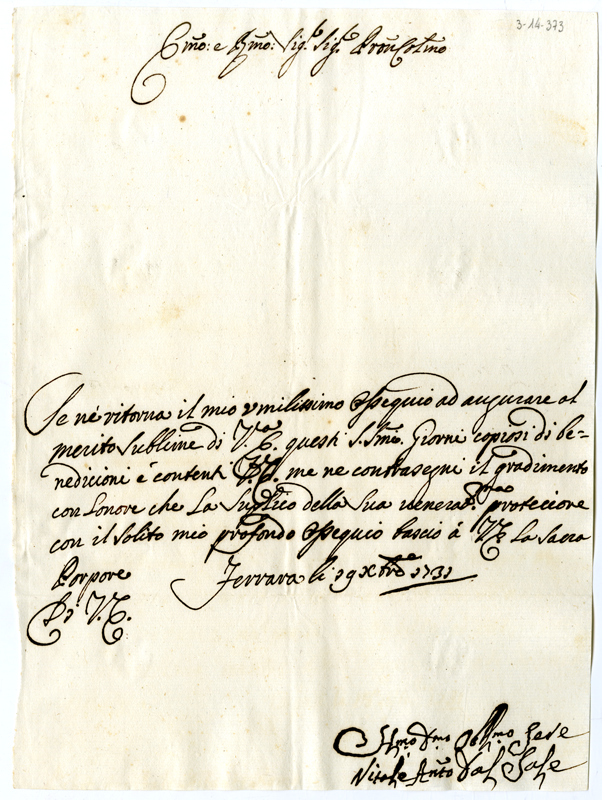 3-14-373
Emo: e Rmo: Sig.r Sig.r Pron Colmo
Se né ritorna il mio vmilissimo Ossequio ad augurare al
merito Sublime di V. E. questi S.Smi. Giorni copiosi di be=
nedicioni é contenti V. E. me ne contrasegni il gradimento
con Lonore che La Suplico della Sua venerat.ma protecione
con il Solito mio profondo Ossequio bascio á V. E. La Sacra
Porpore Ferrara li 19 Xbre 1731
Di V. E.
Hmo Dmo Obllmo Serе
Vitale Anto Dal Sale